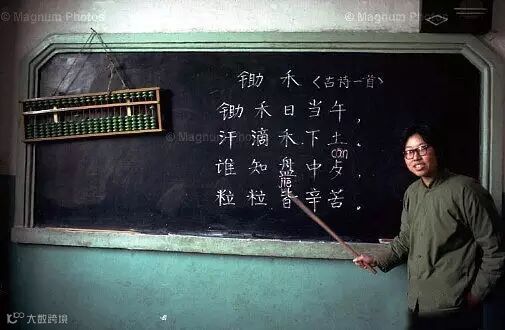 © Magnum Photos
© Magnum Photos
锄禾〈古诗一首〉
锄禾日当午，
© Magnum Photos
汗滴禾下土。
can
谁知盘中歺，
粒粒皆辛苦。
大数跨境